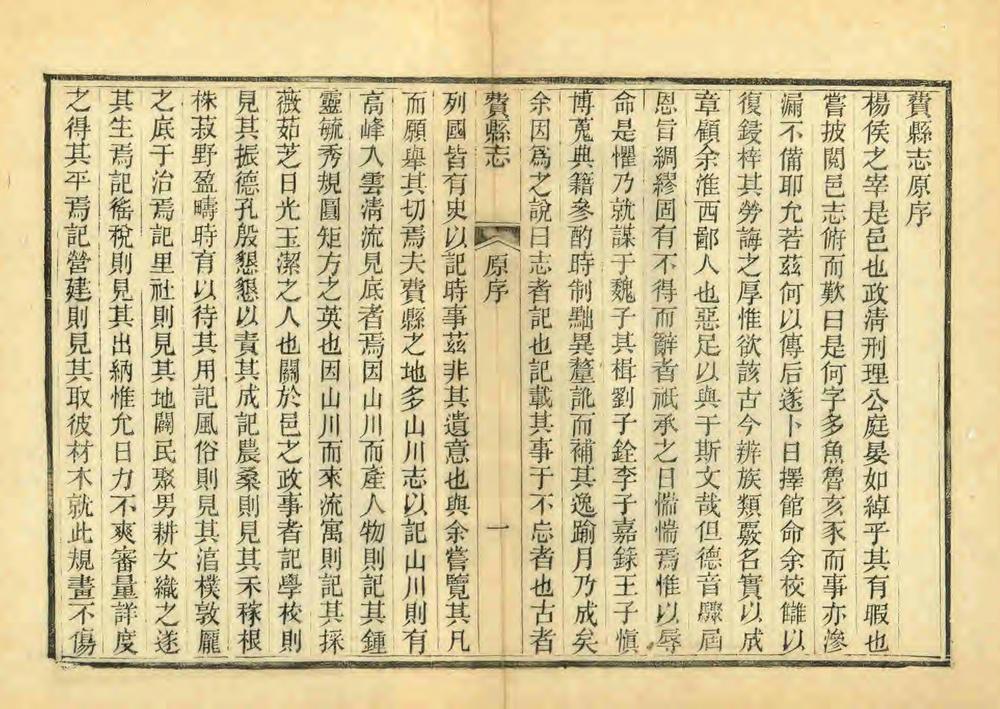 費縣志原序
楊侯之宰是邑也政清刑理公庭晏如綽乎其有暇也
嘗披閱邑志俯而歎曰是何字多魚魯亥豕而事亦滲
漏不備耶允若茲何以傳后遂卜日擇館命余校讎以
復鋟梓其勞誨之厚惟欲該古今辨族類覈名實以成
章顧余淮西鄙人也惡足以與于斯文哉但德音驟屆
恩旨綢繆固有不得而辭者祇承之日惴惴焉惟以辱
命是懼乃就謀于魏子其楫劉子銓李子嘉錄王子愼
博蒐典籍參酌時制黜異釐訛而補其逸踰月乃成矣
余因爲之說曰志者記也記載其事于不忘者也古者
費縣志
原序
一
列國皆有史以記時事茲非其遺意也與余嘗覽其凡
而願舉其切焉夫費縣之地多山川志以記山川則有
高峰入雲清流見底者焉因山川而產人物則記其鍾
靈毓秀規圓矩方之英也因山川而來流寓則記其採
薇茹芝日光玉潔之人也關於邑之政事者記學校則
見其振德孔殷懇懇以責其成記農桑則見其禾稼根
株菽野盈疇時育以待其用記風俗則見其湻樸敦龐
之底于治焉記里社則見其地闢民聚男耕女織之遂
其生焉記徭稅則見其出納惟允日力不爽審量詳度
之得其平焉記營建則見其取彼材木就此規畫不傷